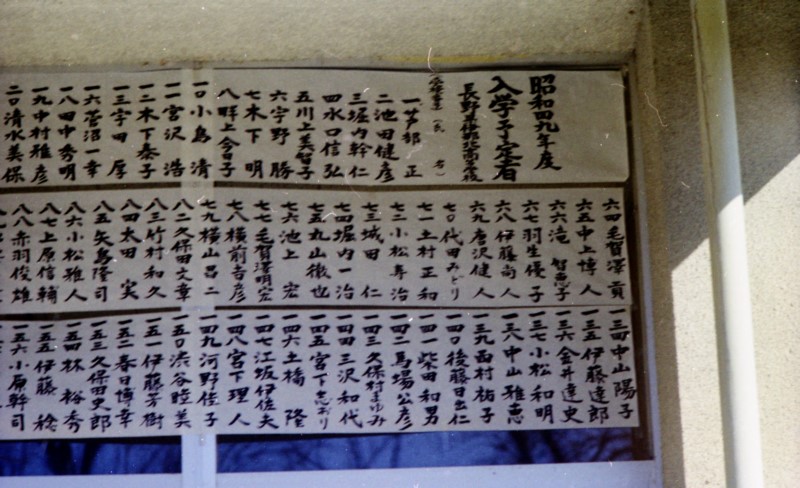 昭和四九年度
入学予定者
長野県伊那北高等学校
受検番号 (氏 名)
一 芦部 正
二 池田健彦
三 堀内幹仁
四 水口信弘
五 川上美智子
六 宇野 勝
七 木下 明
八 畔上今日子
一〇 小島 清
一一 宮沢 浩
一二 木下泰子
一三 宇田 厚
一六 菅沼一幸
一八 田中秀明
一九 中村雅彦
二〇 清水美保
六四 毛賀澤貢
六五 中上博人
六六 滝 智恵子
六七 羽生優子
六八 伊藤尚人
六九 唐沢健人
七〇 代田みどり
七一 土村正和
七二 小松専治
七三 城田 仁
七四 堀内一治
七五 丸山徹也
七六 池上 宏
七七 毛賀澤明宏
七八 横前吉彦
七九 横山昌二
八二 久保田文章
八三 竹村和久
八四 太田 実
八五 矢島隆司
八六 小松雅人
八七 上原信輔
八八 赤羽俊雄
一三四 中山陽子
一三五 伊藤達郎
一三六 金井達史
一三七 小松和明
一三八 中山雅恵
一三九 西村祐子
一四〇 後藤日出仁
一四一 柴田和男
一四二 馬場公彦
一四三 久保村まゆみ
一四四 三沢和代
一四五 宮下志おり
一四六 土橋 隆
一四七 江坂伊佐夫
一四八 宮下理人
一四九 河野佳子
一五〇 渋谷睦美
一五一 伊藤芳樹
一五二 春日博幸
一五三 久保田史郎
一五四 林 裕秀
一五五 伊藤 稔
一五六 小原幹司